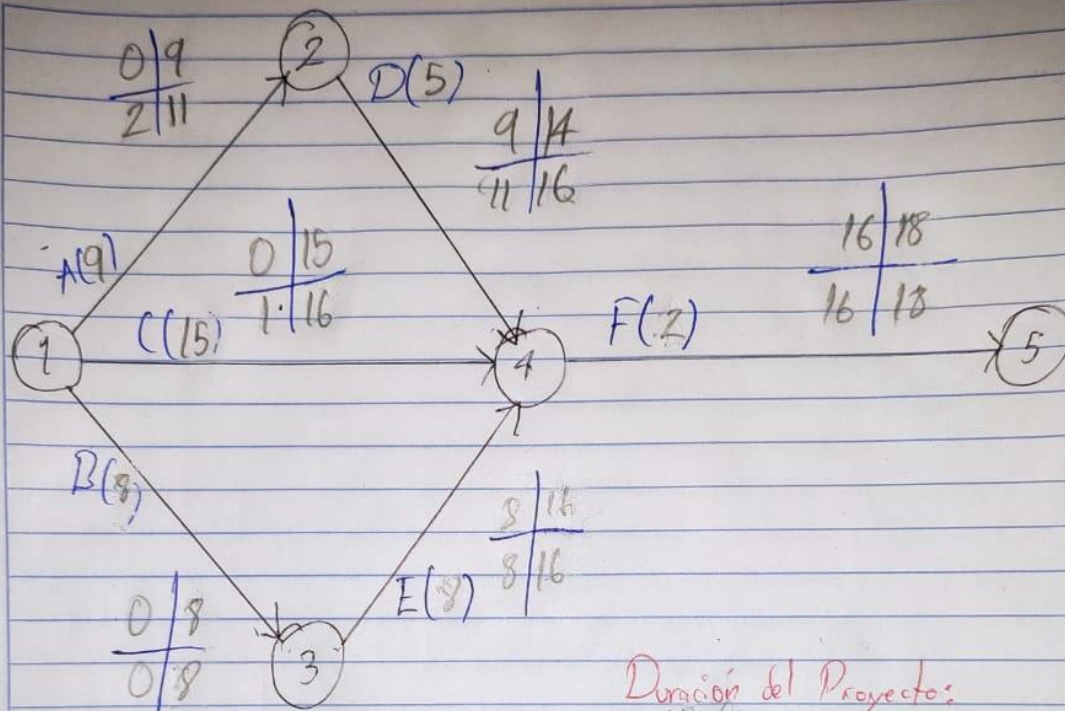 2
0 | 9
2 | 11
D(5)
9 | 14
11 | 16
A(9)
0 | 15
1 | 16
16 | 18
16 | 18
C(15)
F(2)
1
4
5
B(8)
8 | 16
8 | 16
E(8)
0 | 8
0 | 8
3
Duración del Proyecto: